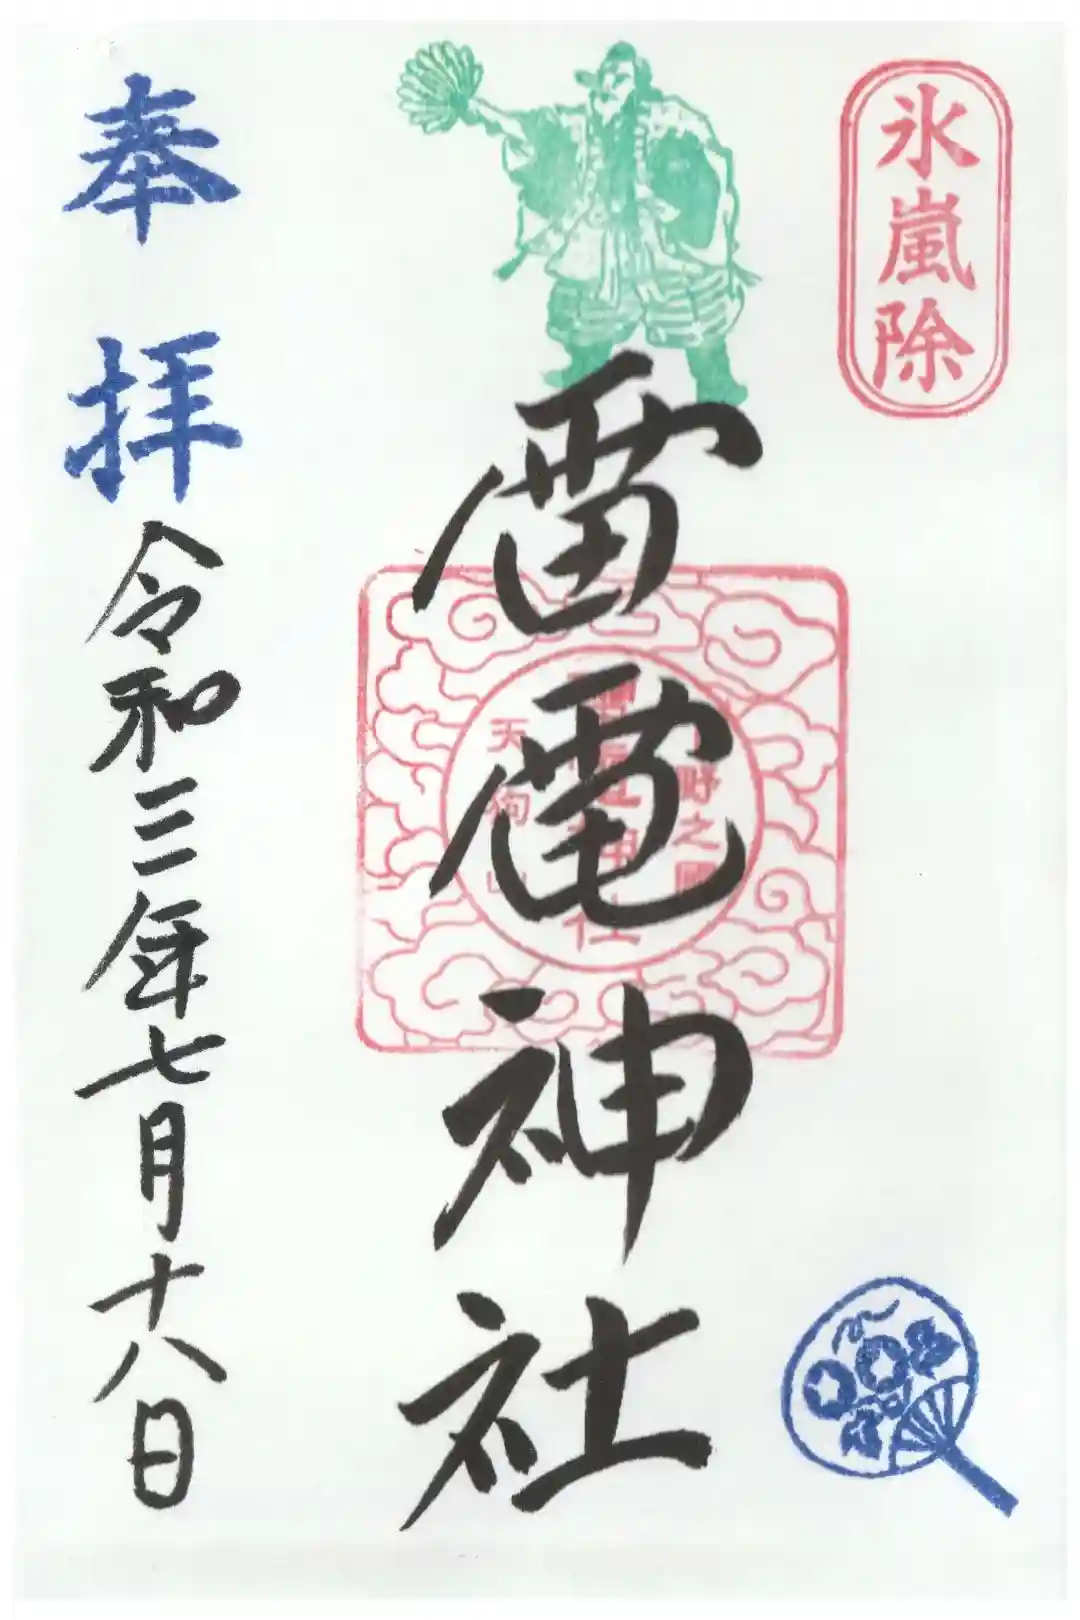 氷嵐除
雷電神社
野之國
天狗山
奉拝
令和三年七月十八日